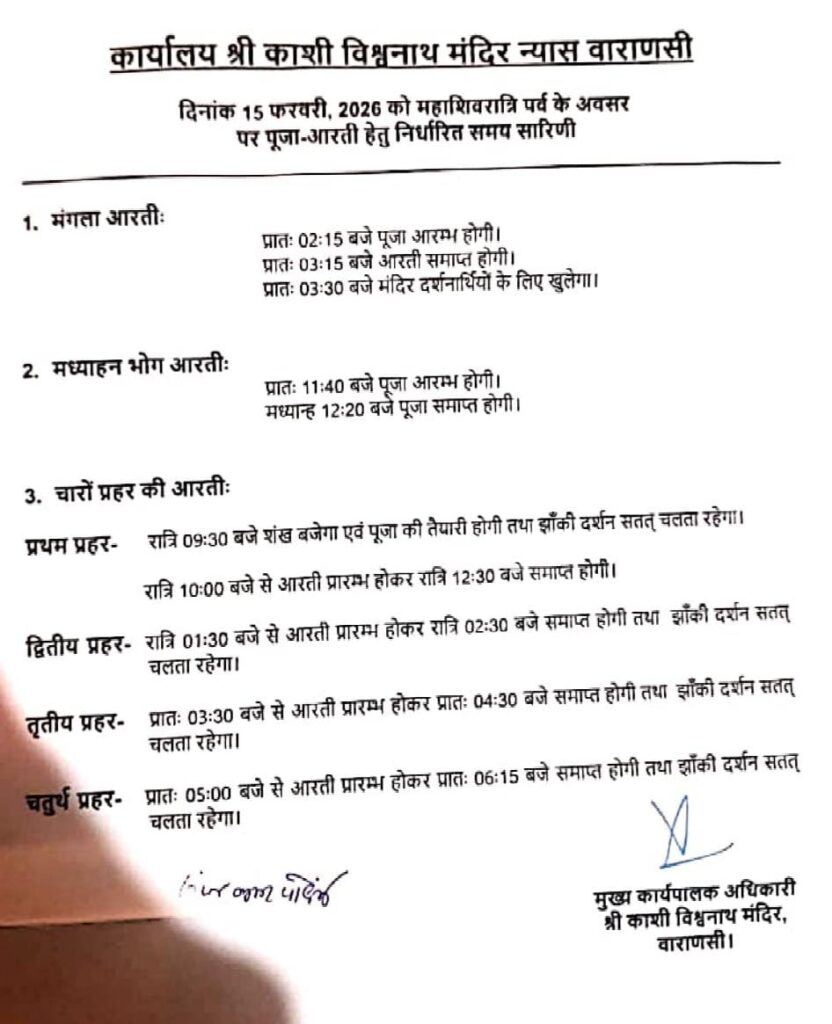 कार्यालय श्री काशी विश्वनाथ मंदिर न्यास वाराणसी
दिनांक 15 फरवरी, 2026 को महाशिवरात्रि पर्व के अवसर
पर पूजा-आरती हेतु निर्धारित समय सारिणी
1. मंगला आरतीः
प्रातः 02:15 बजे पूजा आरम्भ होगी।
प्रातः 03:15 बजे आरती समाप्त होगी।
प्रातः 03:30 बजे मंदिर दर्शनार्थियों के लिए खुलेगा।
2. मध्याहन भोग आरतीः
प्रातः 11:40 बजे पूजा आरम्भ होगी।
मध्यान्ह 12:20 बजे पूजा समाप्त होगी।
3. चारों प्रहर की आरतीः
प्रथम प्रहर- रात्रि 09:30 बजे शंख बजेगा एवं पूजा की तैयारी होगी तथा झाँकी दर्शन सतत् चलता रहेगा।
रात्रि 10:00 बजे से आरती प्रारम्भ होकर रात्रि 12:30 बजे समाप्त होगी।
द्वितीय प्रहर- रात्रि 01:30 बजे से आरती प्रारम्भ होकर रात्रि 02:30 बजे समाप्त होगी तथा झाँकी दर्शन सतत्
चलता रहेगा।
तृतीय प्रहर- प्रातः 03:30 बजे से आरती प्रारम्भ होकर प्रातः 04:30 बजे समाप्त होगी तथा झाँकी दर्शन सतत्
चलता रहेगा।
चतुर्थ प्रहर- प्रातः 05:00 बजे से आरती प्रारम्भ होकर प्रातः 06:15 बजे समाप्त होगी तथा झाँकी दर्शन सतत्
चलता रहेगा।
मुख्य कार्यपालक अधिकारी
श्री काशी विश्वनाथ मंदिर,
वाराणसी।